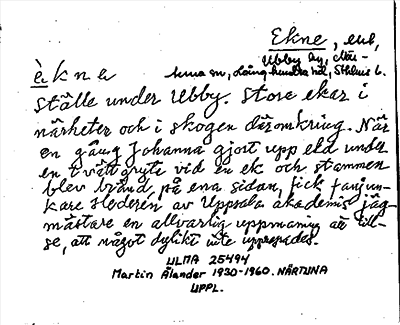 Ekne, enh,
Ubby by, När-
tuna sn, Långhundra hd, Sthlms l.
èkne
ställe under Ubby. Store ekar i
närheten och i skogen däromkring. När
en gång Johanna gjort upp eld under
en tvättgryte vid en ek och stammen
blev bränd på ena sidan, fick fanjun-
kare Hederen av Uppsala akademis jäg-
mästare en allvarlig uppmaning att till-
se, att något dylikt inte upprepades.
ULMA 25494
Martin Ålander 1930-1960. NÄRTUNA
UPPL.